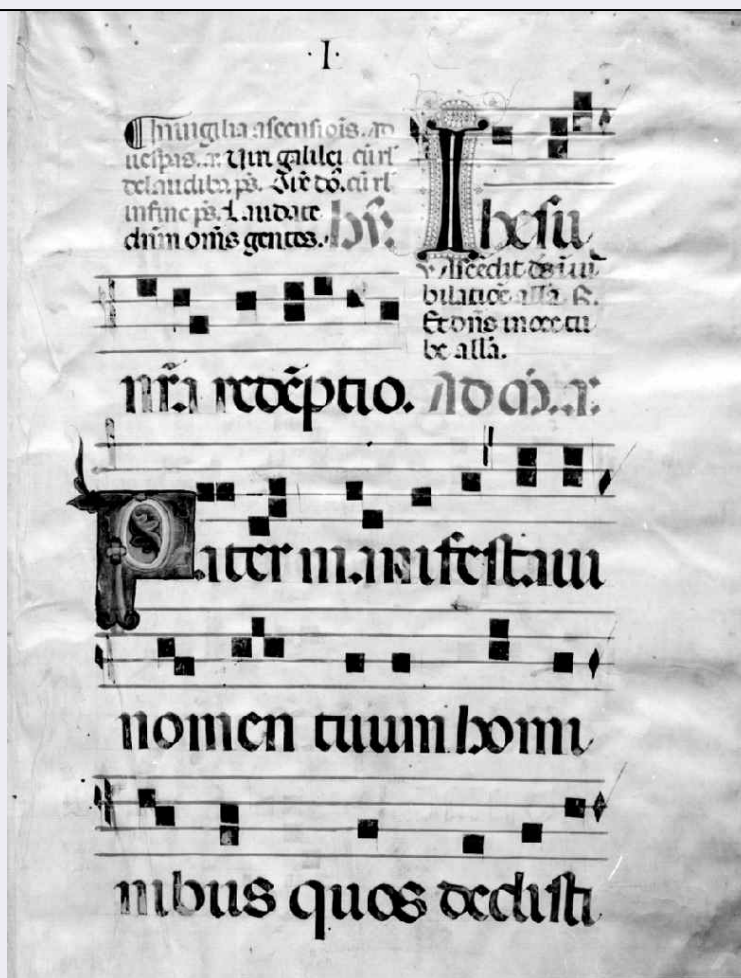 ·I·
In uigilia ascensiois. ad
uesp̄as. a. Uiri galilei cū rl'
de laudib; ps̄. Dix̄ dō. cū rl'
in fine ps̄. Laudate
dn̄m om̄s gentes. hȳ.
Ihesu
℣ Ascēdit ds̄ ī iu
bilatiōe all'a. ℟.
Et dn̄s in uoce tu
be all'a.
nr̄a redēptio. Ad m̄. a.
Pater manifestaui
nomen tuum homi
nibus quos dedisti